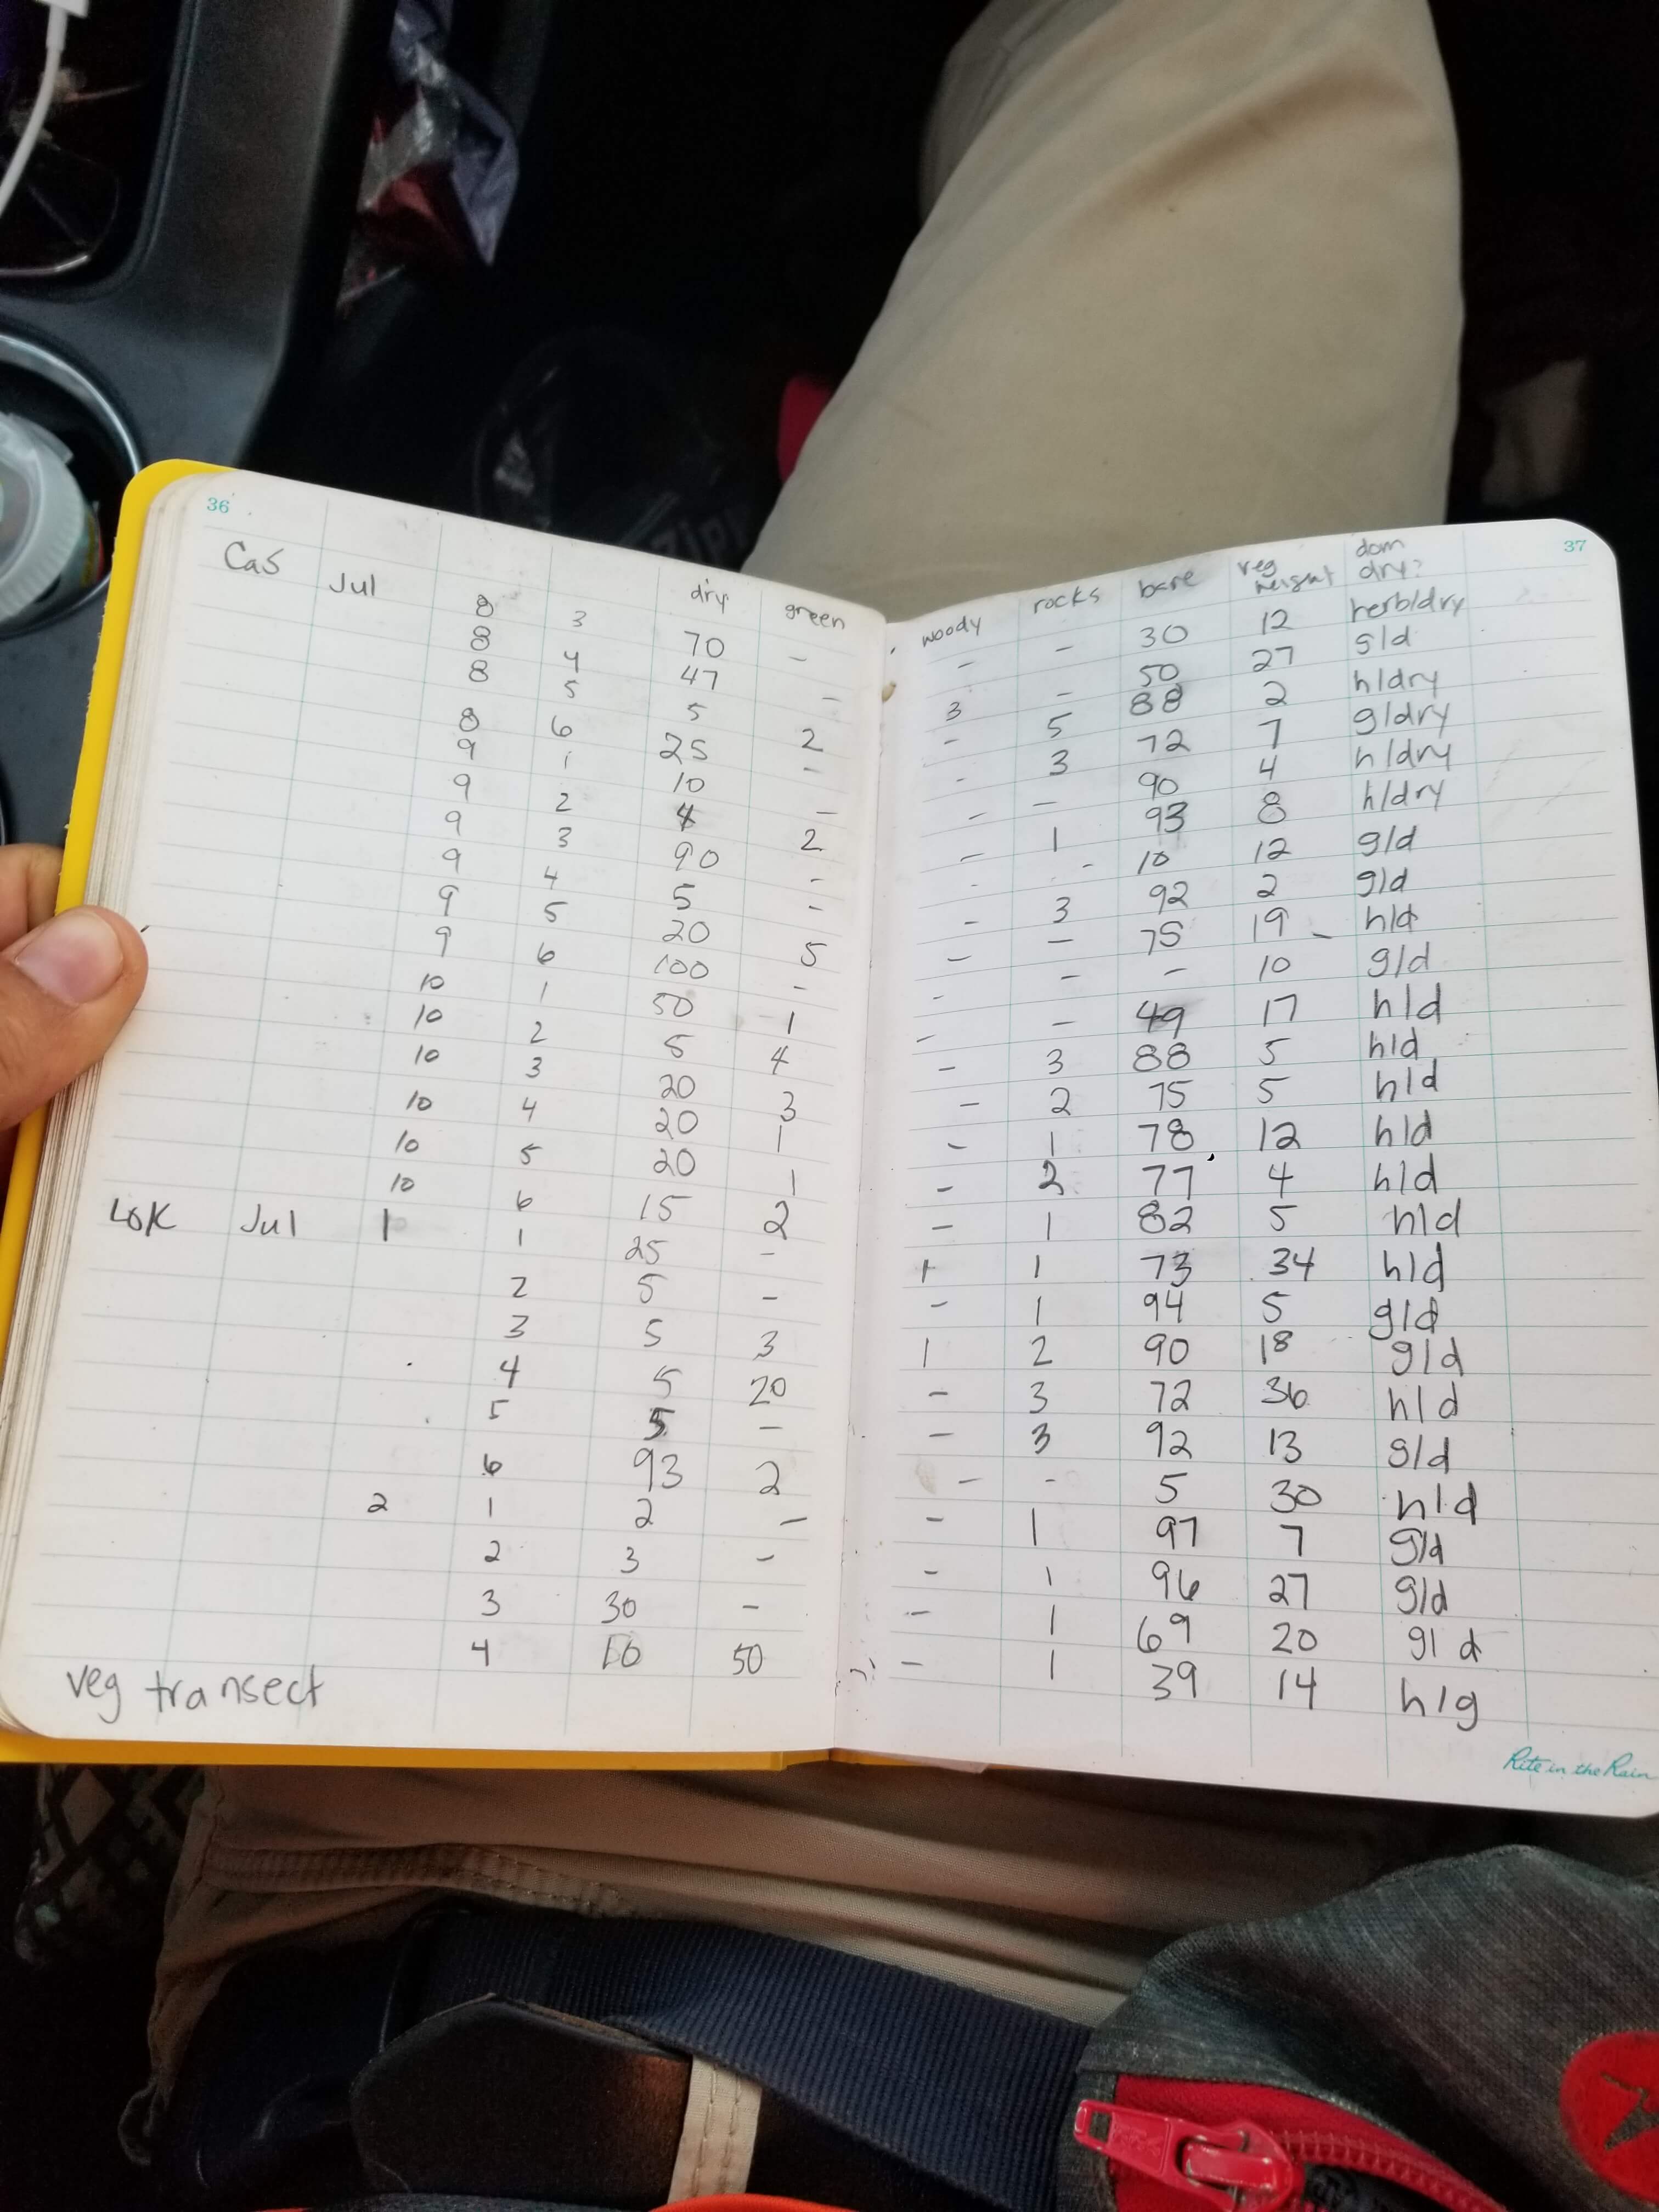 36
CaS Jul dry green
8 3 70 -
8 4 47 -
8 5 5 2
8 6 25 -
9 1 10 -
9 2 4 2
9 3 90 -
9 4 5 -
9 5 20 5
9 6 100 -
10 1 50 1
10 2 5 4
10 3 20 3
10 4 20 1
10 5 20 1
10 6 15 2
LOK Jul 1 1 25 -
2 5 -
3 5 3
4 5 20
5 5 -
6 93 2
2 1 2 -
2 3 -
3 30 -
4 10 50
veg transect
37
woody rocks bare veg height dom dry?
- - 30 12 herb/dry
3 - 50 27 g/d
- 5 88 2 h/dry
- 3 72 7 g/dry
- - 90 4 h/dry
- 1 93 8 h/dry
- - 10 12 g/d
- 3 92 2 g/d
- - 75 19 - h/d
- - - 10 g/d
- - 49 17 h/d
- 3 88 5 h/d
- 2 75 5 h/d
- 1 78 12 h/d
- 2 77 4 h/d
- 1 82 5 h/d
1 1 73 34 h/d
- 1 94 5 g/d
1 2 90 18 g/d
- 3 72 36 h/d
- 3 92 13 g/d
- - 5 30 h/d
- 1 97 7 g/d
- 1 96 27 g/d
- 1 69 20 g/d
- 1 39 14 h/g
Rite in the Rain